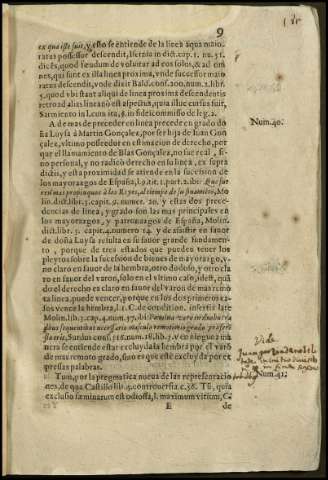 9
ex qua iste fuit, y esto se entiende de la linea àquamaio-
ratus possessor descendit, Isernio in dict. cap. 1. nu. 51.
dicēs, quod feudum de voluntar ad eos solos, & ad om-
nes, qui sunt ex illa linea proxima, vnde successor maio
ratus descendit, vnde dixit Bald. cons. 200. num. 2. lib.
5. quod vbi stant aliqui de linea proxima descendentis
retro ad alias lineas nō est aspectus, quia illuc cursus fuit,
Sarmiento in l. cunita, §. in fideicommisso de leg. 2.
A demas de preceder en linea precede en grado do
ña Luysa à Martin Gonçalez, por ser hija de Iuan Gon
çalez, vltimo posseedor en estimacion de derecho, por
que el llamamiento de Blas Gonçalez, no fue real, si-
no personal, y no radicò derecho en la linea, ex supra
dictis, y esta proximidad se atiende en la sucession de
los mayorazgos de España, l. 9. tit. 1. part. 2. ibi: Que fue
re el mas propinquo à los Reyes, al tiempo de su finamiento, Mo
lin. dict. lib. 3. cap. 9. numer. 20. y estas dos preceden-
cias de linea, y grado son las mas principales en
los mayorazgos, y patronazgos de España, Molin.
dict. lib. 3. capit. 4. numero 14. y de assistir en fauor
de doña Luysa resulta en su fauor grande fundamen-
to, porque de tres estados que pueden tener los
pleytos sobre la sucession de bienes de mayorazgo, y-
no claro en fauor de la hembra, otro dudoso, y otro cla
ro en fauor del varon, solo en el vltimo caso, idest, quã
do el derecho es claro en fauor del varon de mas remo
ta linea, puede vencer, porque en los dos primeros ca-
sos vence la hembra, l. 1. C. de condition. insertis late
Molin. lib. 3. cap. 4. num. 37. ibi:
Tum, por la pregmatica nueua de las representacio
nes, de qua Castillo lib. 5. controuersia c. 56. Tũ, quia
exclusio fæminarum est odiossa, l. maximum vitium, C.
E de
Num. 40.
Vide
Num. 41.